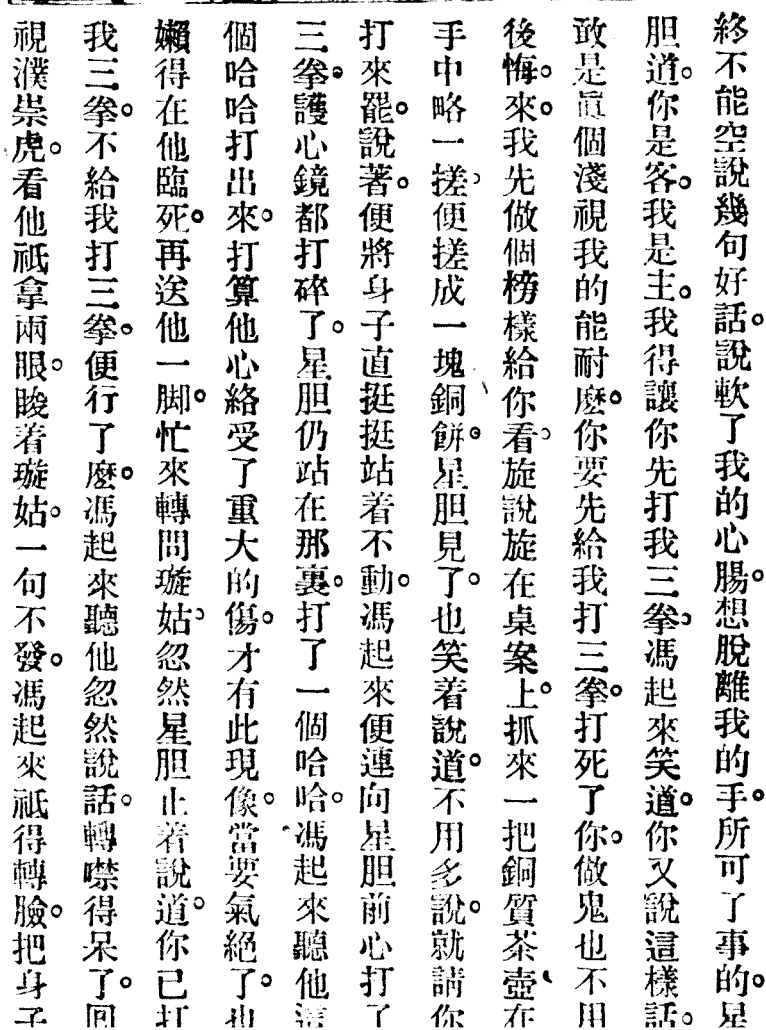 終不能空說幾句好話。說軟了我的心腸。想脫離我的手。所可了事的。星
胆道。你是客。我是主。我得讓你先打我三拳。馮起來笑道。你又說這樣話。
敢是眞個淺視我的能耐麽。你要先給我打三拳。打死了你。做鬼也不用
後悔。來。我先做個榜樣給你看。旋說旋在桌案上。抓來一把銅質茶壺、在
手中略一搓。便搓成一塊銅餅。星胆見了。也笑着說道。不用多說。就請你
打來罷。說著。便將身子直挺挺站着不動。馮起來便連向星胆前心打了
三拳。護心鏡都打碎了。星胆仍站在那裏。打了一個哈哈。馮起來聽他這
個哈哈打出來。打算他心絡受了重大的傷。才有此現像。當要氣絕了。也
嬾得在他臨死。再送他一脚。忙來轉問璇姑。忽然星胆止着說道。你已打
我三拳。不給我打三拳。便行了麽。馮起來聽他忽然說話。轉噤得呆了。回
視濮祟虎。看他祗拿兩眼。睃着璇姑。一句不發。馮起來祗得轉臉。把身子